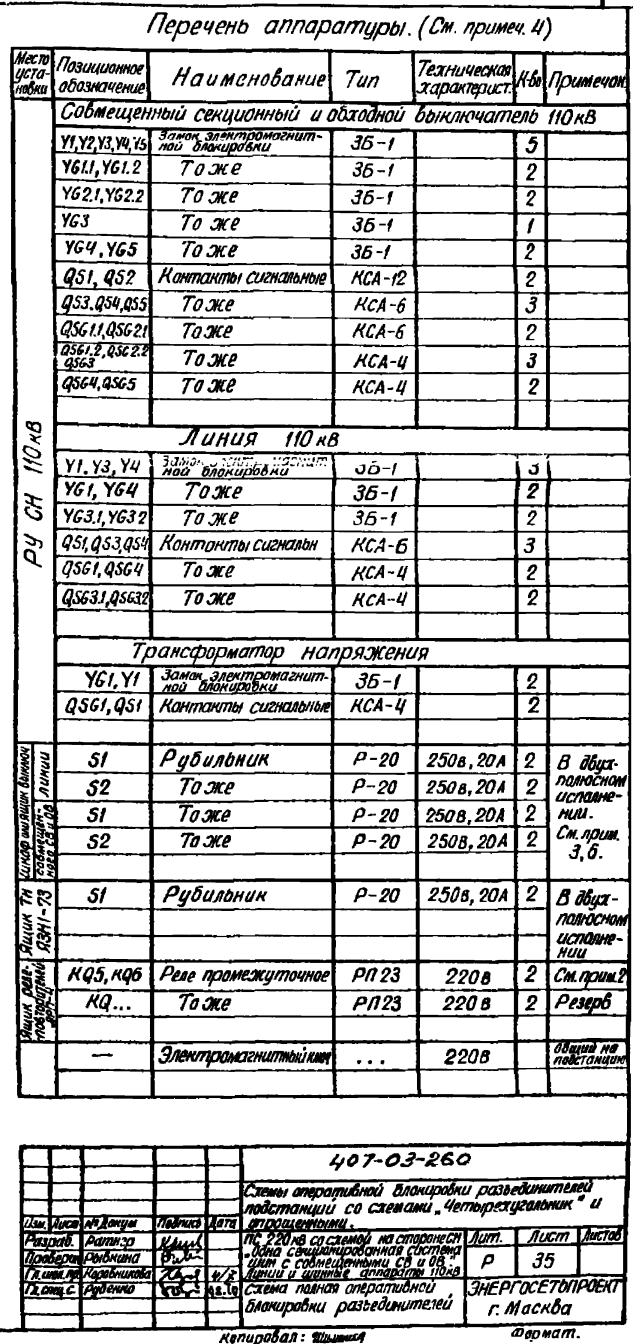 Перечень аппаратуры. (См. примеч. 4)
Место установки Позиционное обозначение Наименование Тип Техническая характерист. К-во Примечан.
Совмещенный секционный и обходной выключатель 110 кВ
Y1,Y2,Y3,Y4,Y5 Замок электромагнитной блокировки ЗБ-1 5
YG1.1, YG1.2 То же ЗБ-1 2
YG2.1, YG2.2 То же ЗБ-1 2
YG3 То же ЗБ-1 1
YG4, YG5 То же ЗБ-1 2
QS1, QS2 Контакты сигнальные КСА-12 2
QS3, QS4, QS5 То же КСА-6 3
QSG1.1, QSG2.1 То же КСА-6 2
QSG1.2, QSG2.2 QSG3 То же КСА-4 3
QSG4, QSG5 То же КСА-4 2
РУ СН 110 кВ
Линия 110 кВ
Y1, Y3, Y4 Замок электромагнитной блокировки ЗБ-1 3
YG1, YG4 То же ЗБ-1 2
YG3.1, YG3.2 То же ЗБ-1 2
QS1, QS3, QS4 Контакты сигнальн КСА-6 3
QSG1, QSG4 То же КСА-4 2
QSG3.1, QSG3.2 То же КСА-4 2
Трансформатор напряжения
YG1, Y1 Замок электромагнитной блокировки ЗБ-1 2
QSG1, QS1 Контакты сигнальные КСА-4 2
Шкаф или ящик выключ
линии
совмещенного СВ и ОВ
S1 Рубильник Р-20 250в, 20А 2 В двух-
S2 То же Р-20 250в, 20А 2 полюсном
S1 То же Р-20 250в, 20А 2 исполнении.
S2 То же Р-20 250в, 20А 2 См. прим. 3, 6.
Ящик ТН ЯЗН1-73
S1 Рубильник Р-20 250в, 20А 2 В двух-
полюсном
исполне-
нии
Ящик реле-повторителей
KQ5, KQ6 Реле промежуточное РП23 220в 2 См. прим. 2
KQ... То же РП23 220в 2 Резерв
— Электромагнитный ключ ... 220в Общий на подстанцию
407-03-260
Схемы оперативной блокировки разъединителей
подстанций со схемами „Четырехугольник" и
упрощенными.
Изм. Лист № докум Подпись Дата
Разраб. Ратнер
Проверил Рыбкина
Гл. инж. пр. Коровникова
Гл. спец. Руденко
ПС 220 кВ со схемой на стороне СН
„Одна секционированная система
шин с совмещенными СВ и ОВ"
Линии и шинные аппараты 110кВ
Лит. Лист Листов
Р 35
Схема полная оперативной
блокировки разъединителей
ЭНЕРГОСЕТЬПРОЕКТ
г. Москва
Копировал:
Формат.